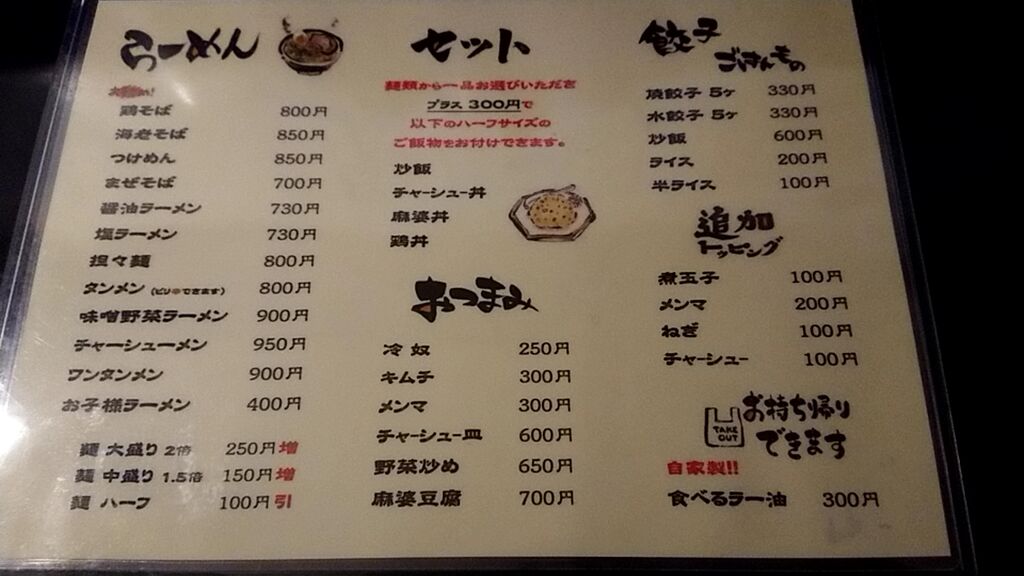 らーめん
鶏そば 800円
海老そば 850円
つけめん 850円
まぜそば 700円
醤油ラーメン 730円
塩ラーメン 730円
担々麺 800円
タンメン (ピリ辛できます) 800円
味噌野菜ラーメン 900円
チャーシューメン 950円
ワンタンメン 900円
お子様ラーメン 400円
麺 大盛り 2倍 250円増
麺 中盛り 1.5倍 150円増
麺 ハーフ 100円引
セット
麺類から一品お選びいただき
プラス 300円で
以下のハーフサイズの
ご飯物をお付けできます。
炒飯
チャーシュー丼
麻婆丼
鶏丼
おつまみ
冷奴 250円
キムチ 300円
メンマ 300円
チャーシュー皿 600円
野菜炒め 650円
麻婆豆腐 700円
餃子
ごはんもの
焼餃子 5ヶ 330円
水餃子 5ヶ 330円
炒飯 600円
ライス 200円
半ライス 100円
追加
トッピング
煮玉子 100円
メンマ 200円
ねぎ 100円
チャーシュー 100円
TAKE OUT
お持ち帰り
できます
自家製!!
食べるラー油 300円